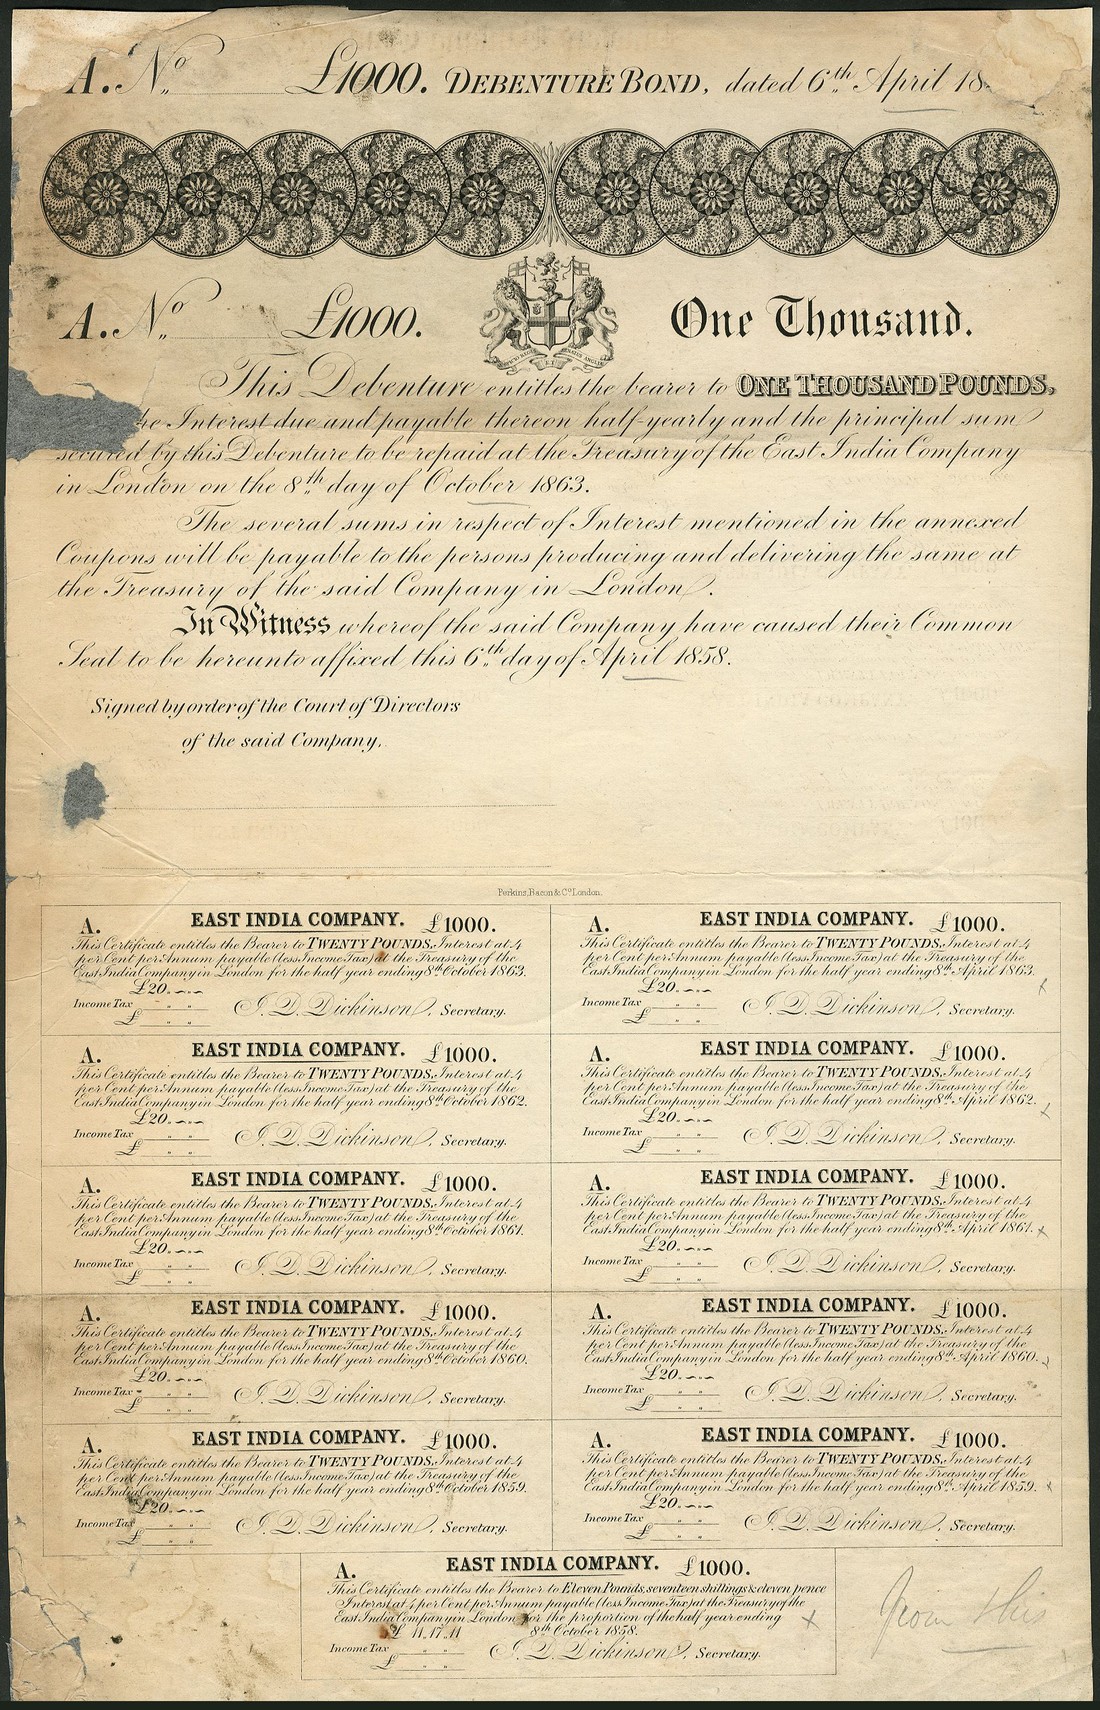 A. No. £1000. DEBENTURE BOND, dated 6th April 18
A. No. £1000. One Thousand.
This Debenture entitles the bearer to ONE THOUSAND POUNDS,
he Interest due and payable thereon half-yearly and the principal sum
secured by this Debenture to be repaid at the Treasury of the East India Company
in London on the 8th day of October 1863.
The several sums in respect of Interest mentioned in the annexed
Coupons will be payable to the persons producing and delivering the same at
the Treasury of the said Company in London.
In Witness whereof the said Company have caused their Common
Seal to be hereunto affixed this 6th day of April 1858.
Signed by order of the Court of Directors
of the said Company,
Perkins, Bacon & Co. London.
A. EAST INDIA COMPANY. £1000.
This Certificate entitles the Bearer to TWENTY POUNDS, Interest at 4
per Cent per Annum payable (less Income Tax) at the Treasury of the
East India Company in London for the half year ending 8th October 1863.
£20. -.-
Income Tax " "
£ " "
J. D. Dickinson, Secretary.
A. EAST INDIA COMPANY. £1000.
This Certificate entitles the Bearer to TWENTY POUNDS, Interest at 4
per Cent per Annum payable (less Income Tax) at the Treasury of the
East India Company in London for the half year ending 8th April 1863.
£20. -.-
Income Tax " "
£ " "
J. D. Dickinson, Secretary.
A. EAST INDIA COMPANY. £1000.
This Certificate entitles the Bearer to TWENTY POUNDS, Interest at 4
per Cent per Annum payable (less Income Tax) at the Treasury of the
East India Company in London for the half year ending 8th October 1862.
£20. -.-
Income Tax " "
£ " "
J. D. Dickinson, Secretary.
A. EAST INDIA COMPANY. £1000.
This Certificate entitles the Bearer to TWENTY POUNDS, Interest at 4
per Cent per Annum payable (less Income Tax) at the Treasury of the
East India Company in London for the half year ending 8th April 1862.
£20. -.-
Income Tax " "
£ " "
J. D. Dickinson, Secretary.
A. EAST INDIA COMPANY. £1000.
This Certificate entitles the Bearer to TWENTY POUNDS, Interest at 4
per Cent per Annum payable (less Income Tax) at the Treasury of the
East India Company in London for the half year ending 8th October 1861.
£20. -.-
Income Tax " "
£ " "
J. D. Dickinson, Secretary.
A. EAST INDIA COMPANY. £1000.
This Certificate entitles the Bearer to TWENTY POUNDS, Interest at 4
per Cent per Annum payable (less Income Tax) at the Treasury of the
East India Company in London for the half year ending 8th April 1861.
£20. -.-
Income Tax " "
£ " "
J. D. Dickinson, Secretary.
A. EAST INDIA COMPANY. £1000.
This Certificate entitles the Bearer to TWENTY POUNDS, Interest at 4
per Cent per Annum payable (less Income Tax) at the Treasury of the
East India Company in London for the half year ending 8th October 1860.
£20. -.-
Income Tax " "
£ " "
J. D. Dickinson, Secretary.
A. EAST INDIA COMPANY. £1000.
This Certificate entitles the Bearer to TWENTY POUNDS, Interest at 4
per Cent per Annum payable (less Income Tax) at the Treasury of the
East India Company in London for the half year ending 8th April 1860.
£20. -.-
Income Tax " "
£ " "
J. D. Dickinson, Secretary.
A. EAST INDIA COMPANY. £1000.
This Certificate entitles the Bearer to TWENTY POUNDS, Interest at 4
per Cent per Annum payable (less Income Tax) at the Treasury of the
East India Company in London for the half year ending 8th October 1859.
£20. -.-
Income Tax " "
£ " "
J. D. Dickinson, Secretary.
A. EAST INDIA COMPANY. £1000.
This Certificate entitles the Bearer to TWENTY POUNDS, Interest at 4
per Cent per Annum payable (less Income Tax) at the Treasury of the
East India Company in London for the half year ending 8th April 1859.
£20. -.-
Income Tax " "
£ " "
J. D. Dickinson, Secretary.
A. EAST INDIA COMPANY. £1000.
This Certificate entitles the Bearer to Eleven Pounds, seventeen shillings & eleven pence
Interest at 4 per Cent per Annum payable (less Income Tax) at the Treasury of the
East India Company in London for the proportion of the half year ending
£ 11.17.11 8th October 1858.
Income Tax " "
£ " "
J. D. Dickinson, Secretary.
from this